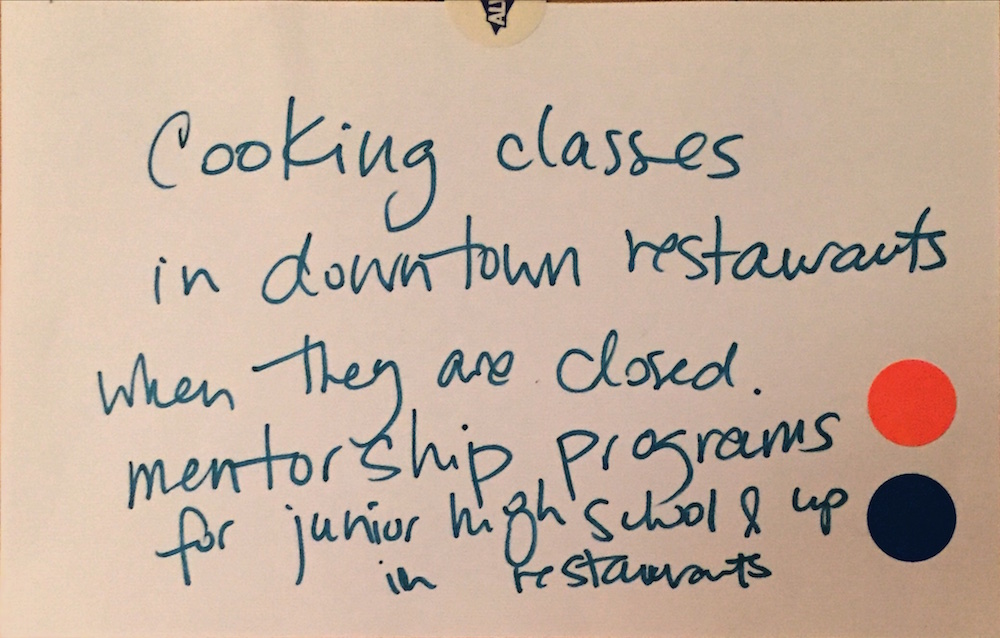 Cooking classes
in downtown restaurants
when they are closed.
mentorship programs
for junior high school & up
in restaurants